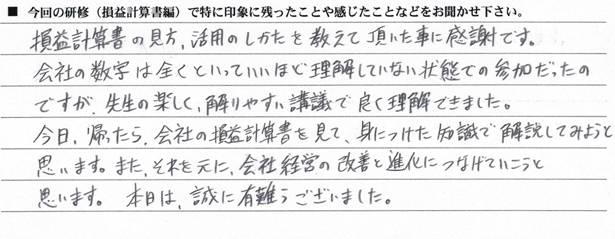 ■ 今回の研修（損益計算書編）で特に印象に残ったことや感じたことなどをお聞かせ下さい。
損益計算書の見方、活用のしかたを教えて頂いた事に感謝です。
会社の数字は全くといっていいほど理解していない状態での参加だったの
ですが、先生の楽しく、解りやすい講義で良く理解できました。
今日、帰ったら、会社の損益計算書を見て、身につけた知識で解説してみようと
思います。また、それを元に、会社経営の改善と進化につなげていこうと
思います。 本日は、誠に有難うございました。